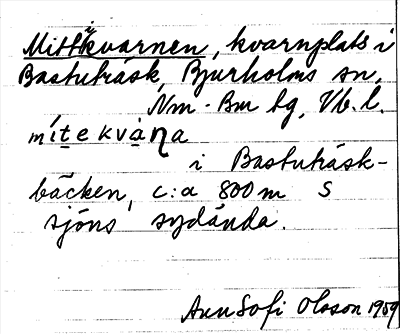 Mittikvarnen, kvarnplats i
Bastuträsk, Bjurholms sn,
Nm-Bm tg, Vb. l.
mi̱te̱kvạ̄ɳa
i Bastuträsk-
bäcken, c:a 800 m S
sjöns sydända.
Ann Sofi Olsson 1959